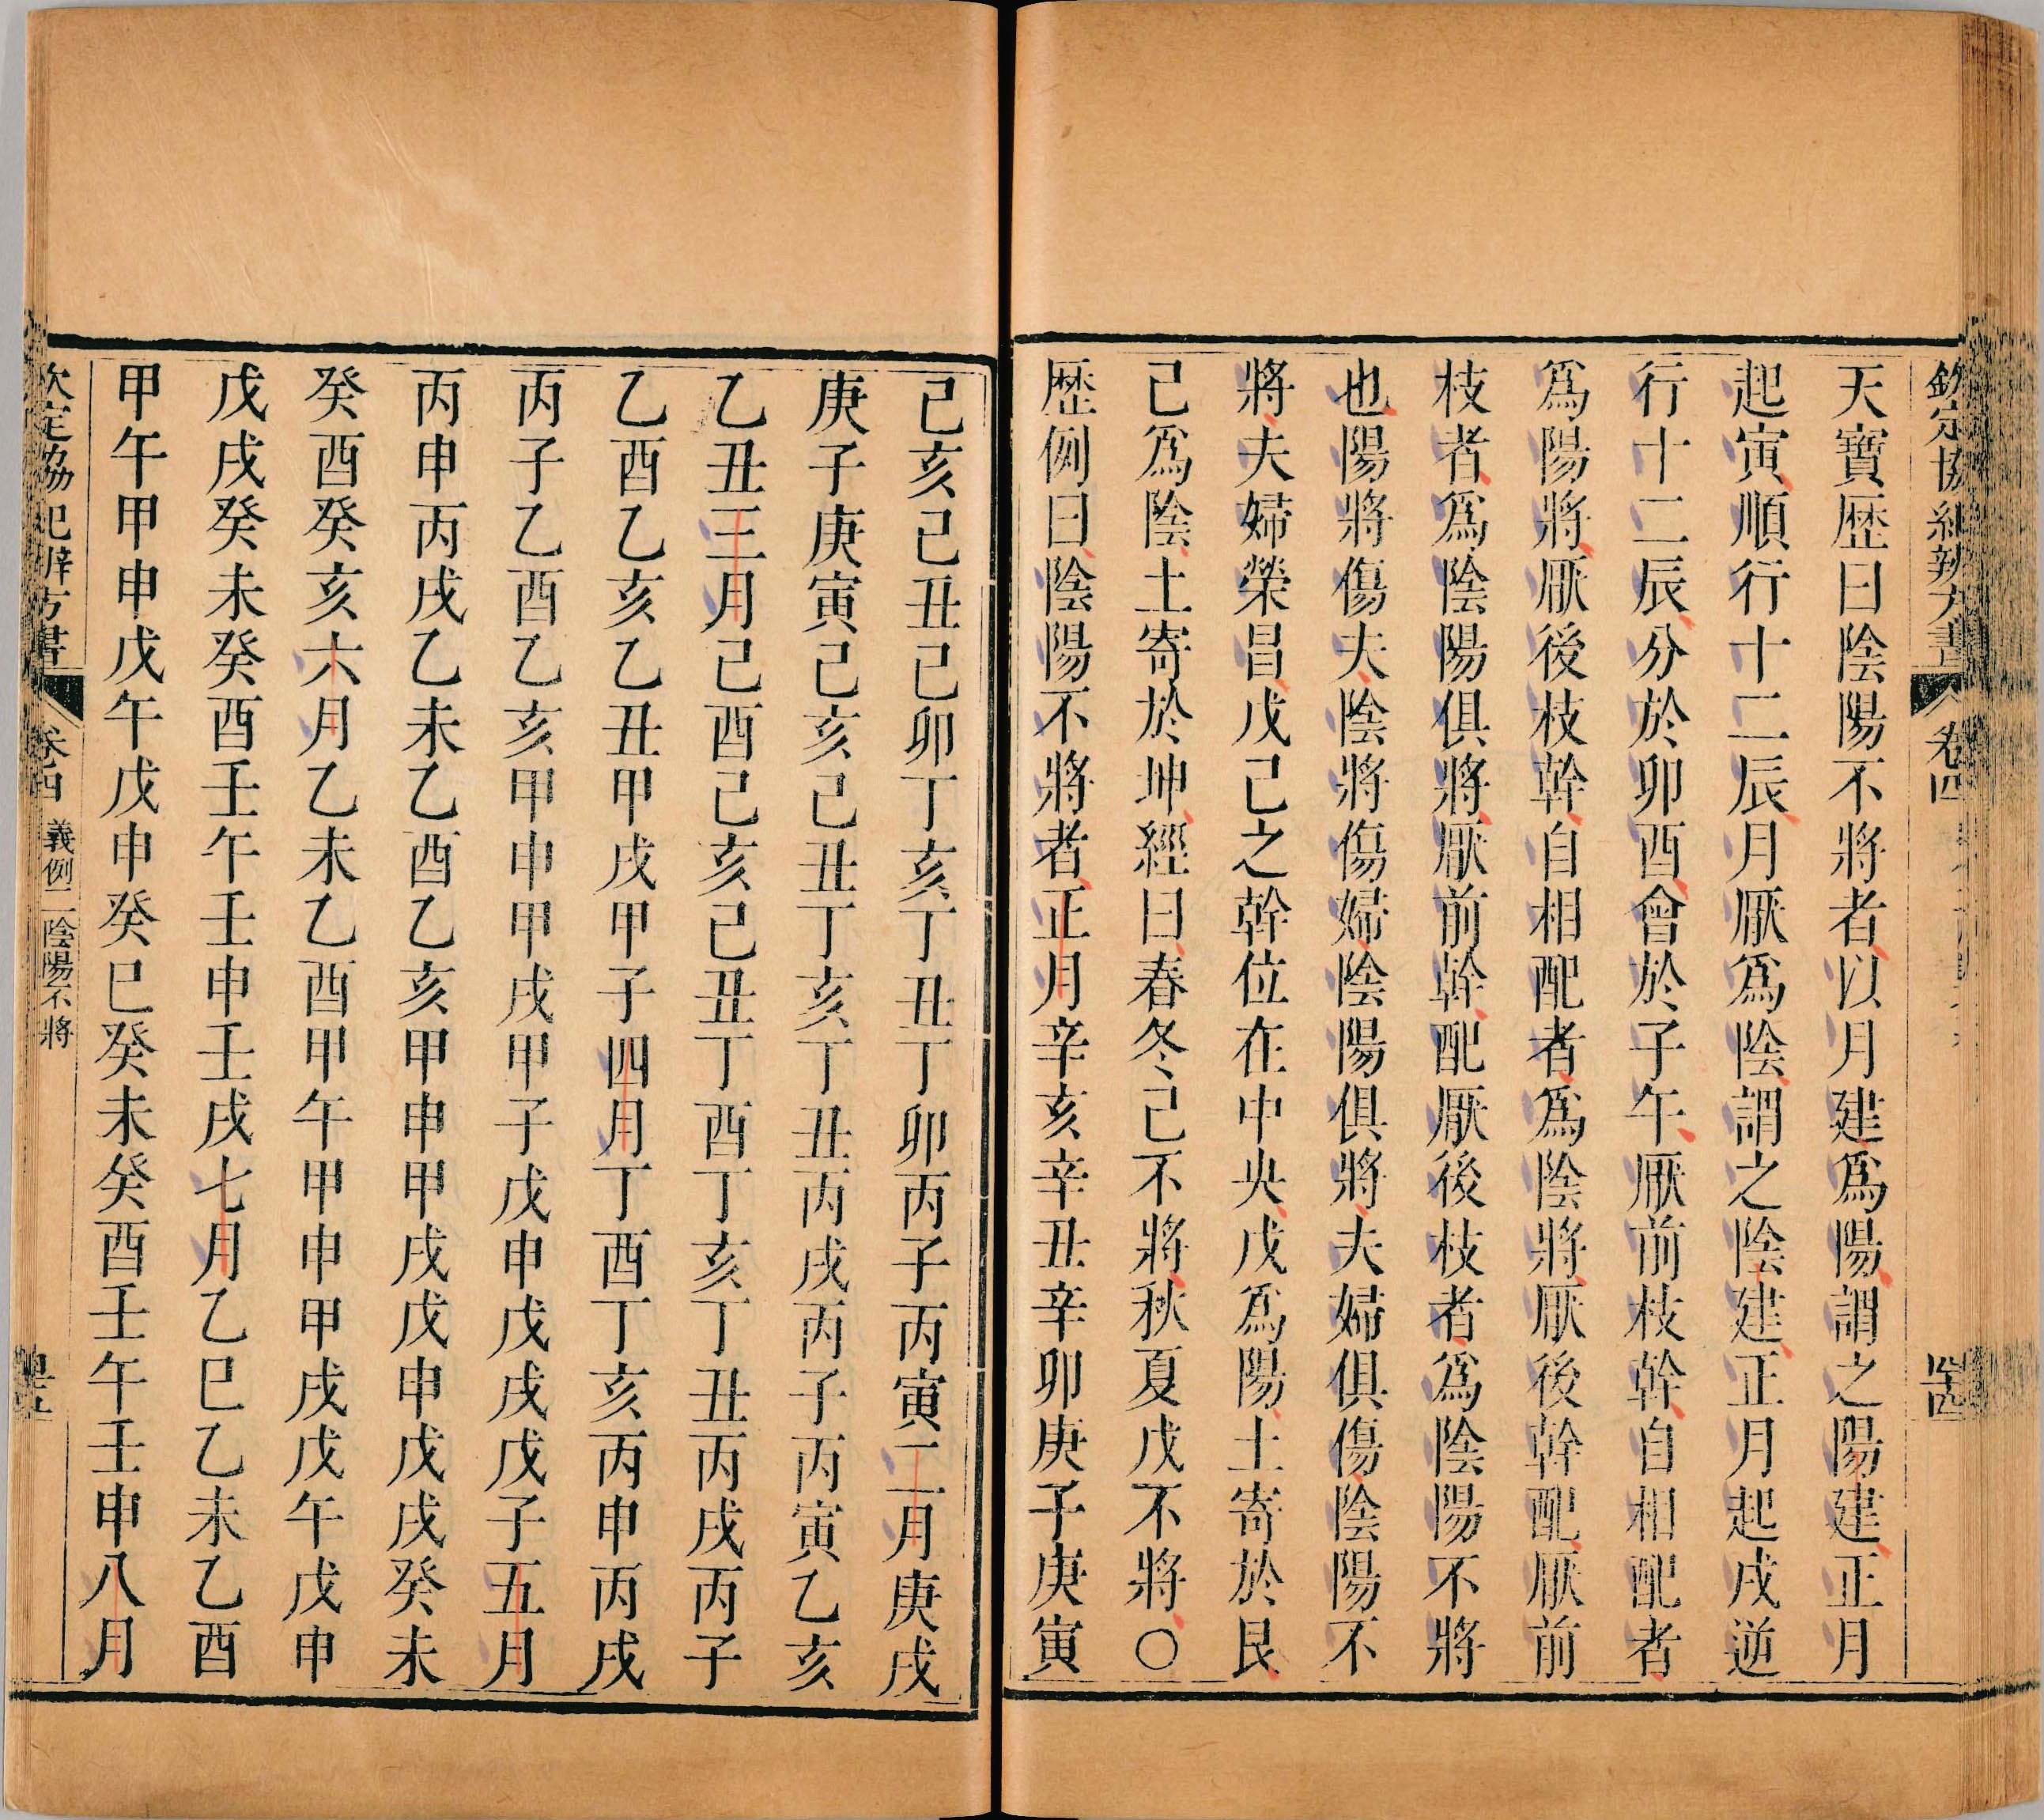 欽定協紀辨方書 卷四
天寶歷曰陰陽不將者以月建爲陽謂之陽建正月
起寅順行十二辰月厭爲陰謂之陰建正月起戌逆
行十二辰分於卯酉會於子午厭前枝幹自相配者
爲陽將厭後枝幹自相配者爲陰將厭後幹配厭前
枝者爲陰陽俱將厭前幹配厭後枝者爲陰陽不將
也陽將傷夫陰將傷婦陰陽俱將夫婦俱傷陰陽不
將夫婦榮昌戊己之幹位在中央戊爲陽土寄於艮
己爲陰土寄於坤經曰春冬己不將秋夏戊不將〇
歷例曰陰陽不將者正月辛亥辛丑辛卯庚子庚寅
己亥己丑己卯丁亥丁丑丁卯丙子丙寅二月庚戌
庚子庚寅己亥己丑丁亥丁丑丙戌丙子丙寅乙亥
乙丑三月己酉己亥己丑丁酉丁亥丁丑丙戌丙子
乙酉乙亥乙丑甲戌甲子四月丁酉丁亥丙申丙戌
丙子乙酉乙亥甲申甲戌甲子戊申戊戌戊子五月
丙申丙戌乙未乙酉乙亥甲申甲戌戊申戊戌癸未
癸酉癸亥六月乙未乙酉甲午甲申甲戌戊午戊申
戊戌癸未癸酉壬午壬申壬戌七月乙巳乙未乙酉
甲午甲申戊午戊申癸巳癸未癸酉壬午壬申八月
欽定協紀辨方書 卷四 義例二 陰陽不將